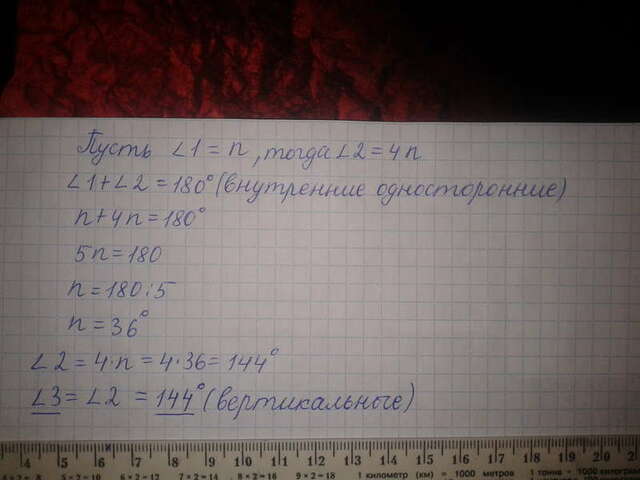 Пусть ∠1 = n, тогда ∠2 = 4n
∠1+∠2 = 180° (внутренние односторонние)
n+4n = 180°
5n = 180
n = 180:5
n = 36°
∠2 = 4·n = 4·36 = 144°
∠3 = ∠2 = 144° (вертикальные)
4 5 6 7 8 9 10 11 12 13 14 15 16 17 18 19 20
5×2=10 6×2=12 7×2=14 8×2=16 9×2=18 1 километр (км) = 1000 метров 1 тонна = 1000 килограм